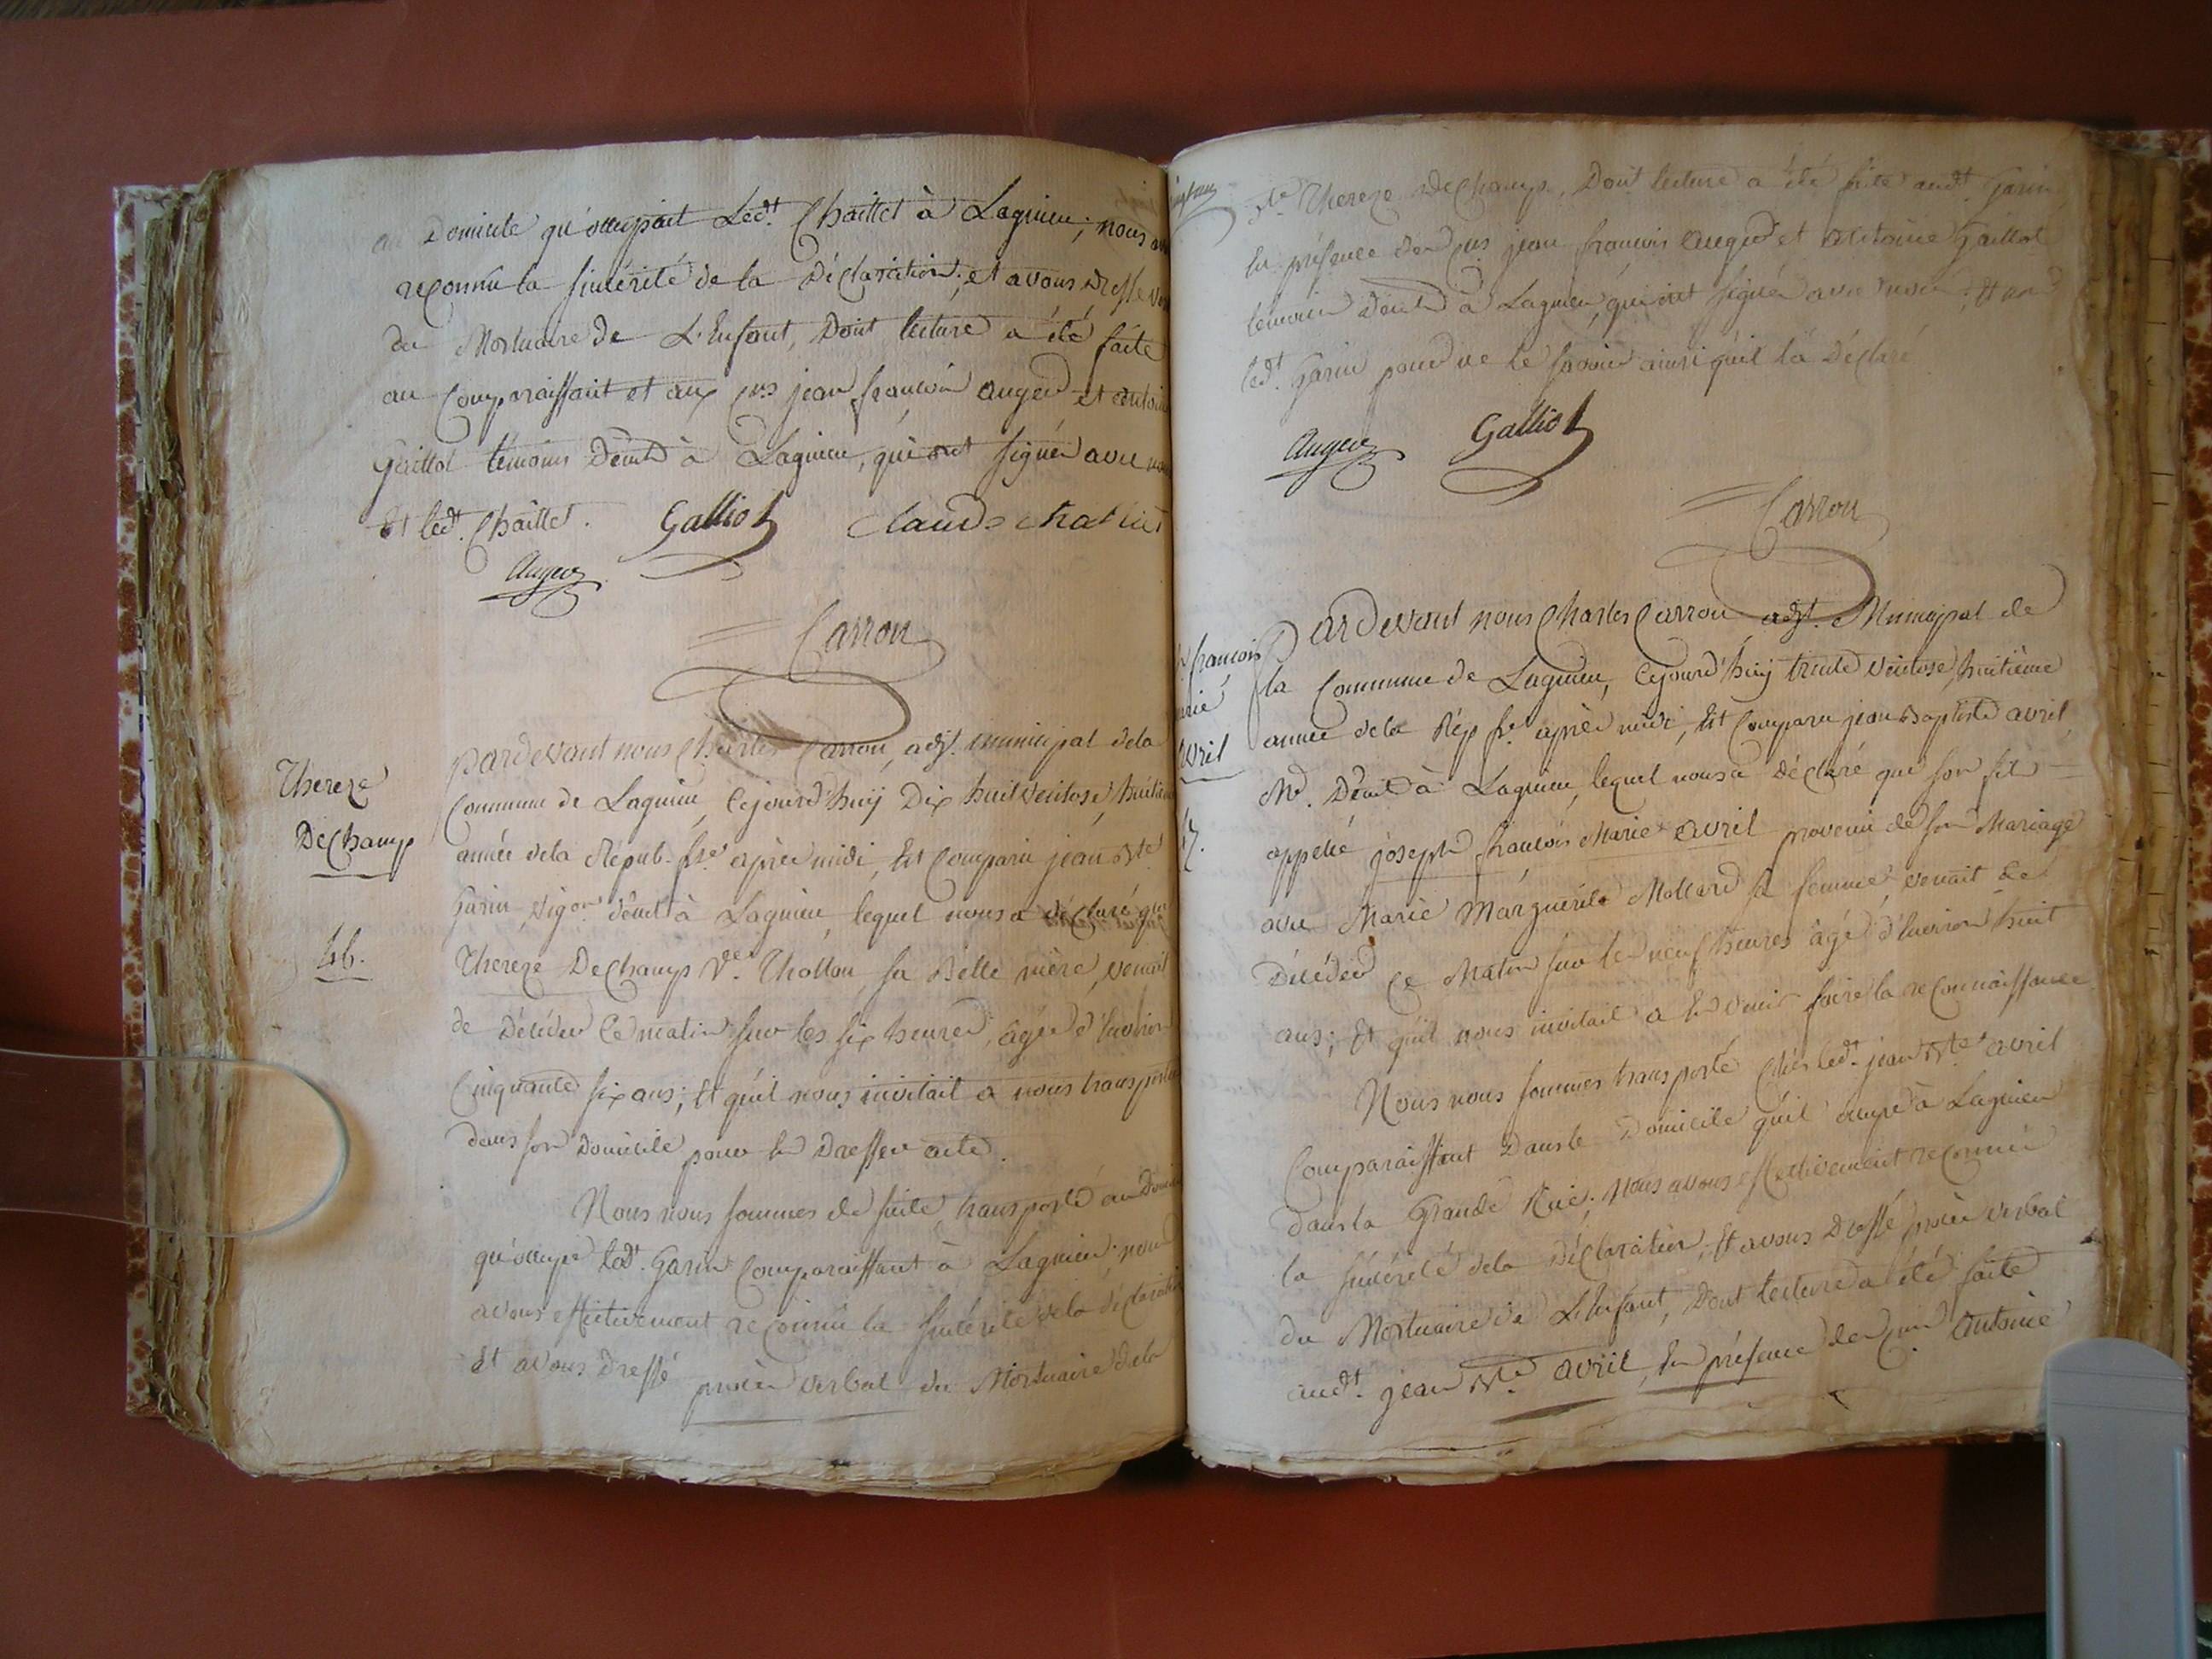 au Domicile qu'occupait Ledt. Chaillet à Lagnieu; nous
reconnu la sincérité de la Déclaration; et avons Dressé
du Mortuaire de L'Enfant, Dont lecture a été faite
au Comparaissant et aux Cns jean françois auger et
Gaillot témoins Demts à Lagnieu, qui ont signés avec
Et ledt. Chaillet. Galliot Claude chatliet
Auger
Carron
Thereze
DeChamp
46.
Pardevant nous Charles Carron, adjt. municipal dela
Commune de Lagnieu, Cejourd'huy Dix huit ventose, huitième
année dela Répub. fse après midi, Est Comparu jean Bte
Garin, vigon demt à Lagnieu, lequel nous a déclaré que
Thereze DeChamps Ve. Thollon, sa Belle mère, venait
de Décéder Ce matin sur les six heures, agée d'Environ
Cinquante six ans; Et qu'il nous invitait a nous transporter
dans son Domicile pour En Dresser acte.
Nous nous sommes de suite, transporté au
qu'occupe ledt. Garin Comparaissant à Lagnieu; nous
avons effectivement reconnu la sincérité dela déclaration
Et avons Dressé procès verbal du Mortuaire dela
dte. Thereze DeChamps, Dont lecture a été faite audt. Garin
En présence des Cns jean francois auger et Antoine Gaillot
témoins Demts à Lagnieu, qui ont signés avec nous; Et non
ledt. Garin pour ne le savoir ainsi qu'il l'a Déclaré
Auger Galliot
Carron
francois
Avril
47.
Pardevant nous Charles Carron adjt. Municipal de
la Commune de Lagnieu, Cejourd'huy trente ventose, huitième
année dela Rép fse après midi, Est Comparu jean Baptiste avril
Md. Demt à Lagnieu, lequel nous a Déclaré que son fils
appellé joseph françois Marie avril provenu de son Mariage
avec Marie Marguerite Mollard sa femme, venait de
Décéder Ce Matin sur les neuf heures agé d'Environ huit
ans; Et qu'il nous invitait a En venir faire la reconnaissance
Nous nous sommes transporté Chés ledt. jean Bte avril
Comparaissant Dans le Domicile qu'il occupe à Lagnieu
dans la Grande Rue; nous avons effectivement reconnu
la sincérité dela Déclaration, Et avons Dressé procès verbal
du Mortuaire de L'Enfant, Dont lecture a été faite
audt. jean Bte avril, En présence des Cns Antoine